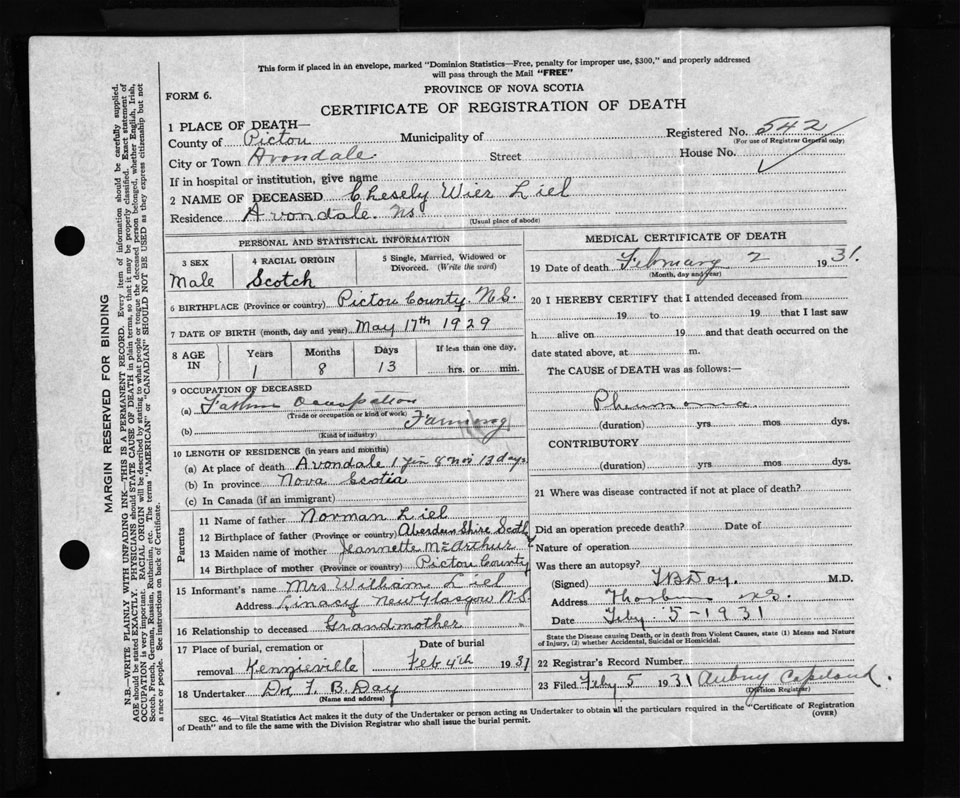 This form if placed in an envelope, marked "Dominion Statistics—Free, penalty for improper use, $300," and properly addressed
will pass through the Mail "FREE"
PROVINCE OF NOVA SCOTIA
FORM 6.
CERTIFICATE OF REGISTRATION OF DEATH
1 PLACE OF DEATH—
County of Pictou Municipality of Registered No. 542
(For use of Registrar General only)
City or Town Avondale Street House No.
If in hospital or institution, give name
2 NAME OF DECEASED Chesely Wier Liel
Residence Avondale. Ns.
(Usual place of abode)
PERSONAL AND STATISTICAL INFORMATION
3 SEX Male
4 RACIAL ORIGIN Scotch
5 Single, Married, Widowed or Divorced. (Write the word)
6 BIRTHPLACE (Province or country) Pictou County. N.S.
7 DATE OF BIRTH (month, day and year) May 17th 1929
8 AGE IN Years 1 Months 8 Days 13 If less than one day, hrs. or min.
9 OCCUPATION OF DECEASED
(a) Father Occupation
(Trade or occupation or kind of work)
(b) Farming
(Kind of industry)
10 LENGTH OF RESIDENCE (in years and months)
(a) At place of death Avondale 1 8 13 days
(b) In province Nova Scotia
(c) In Canada (if an immigrant)
Parents
11 Name of father Norman Liel
12 Birthplace of father (Province or country) Aberdeen Shire Scotl
13 Maiden name of mother Jeannette McArthur
14 Birthplace of mother (Province or country) Pictou County
15 Informant's name Mrs William Liel
Address Linacy New Glasgow N.S
16 Relationship to deceased Grandmother
17 Place of burial, cremation or removal Kenzieville Date of burial Feb 4th 1931
18 Undertaker Dr. F. B. Day
(Name and address)
MEDICAL CERTIFICATE OF DEATH
19 Date of death February 2 1931.
(Month, day and year)
20 I HEREBY CERTIFY that I attended deceased from
19 to 19 that I last saw
h alive on 19 and that death occurred on the
date stated above, at m.
The CAUSE of DEATH was as follows:—
Pneumonia
(duration) yrs mos dys.
CONTRIBUTORY
(duration) yrs. mos. dys.
21 Where was disease contracted if not at place of death?
Did an operation precede death? Date of
Nature of operation
Was there an autopsy?
(Signed) F B Day. M.D.
Address Thorburn N.S.
Date Feby 5-1931
State the Disease causing Death, or in death from Violent Causes, state (1) Means and Nature
of Injury, (2) whether Accidental, Suicidal or Homicidal.
22 Registrar's Record Number
23 Filed Feby 5 1931 Aubrey Copeland.
(Division Registrar)
SEC. 46—Vital Statistics Act makes it the duty of the Undertaker or person acting as Undertaker to obtain all the particulars required in the "Certificate of Registration
of Death" and to file the same with the Division Registrar who shall issue the burial permit. (OVER)
MARGIN RESERVED FOR BINDING
N.B.—WRITE PLAINLY WITH UNFADING INK—THIS IS A PERMANENT RECORD. Every item of information should be carefully supplied.
AGE should be stated EXACTLY. PHYSICIANS should STATE CAUSE OF DEATH in plain terms, so that it may be properly classified. Exact statement of
OCCUPATION is very important. RACIAL ORIGIN will be described by stating to what people or tongue the deceased person belonged, whether English, Irish,
Scotch, French, German, Russian, Ruthenian, etc. The terms "AMERICAN" or "CANADIAN" SHOULD NOT BE USED as they express citizenship but not
a race or people. See instructions on back of Certificate.